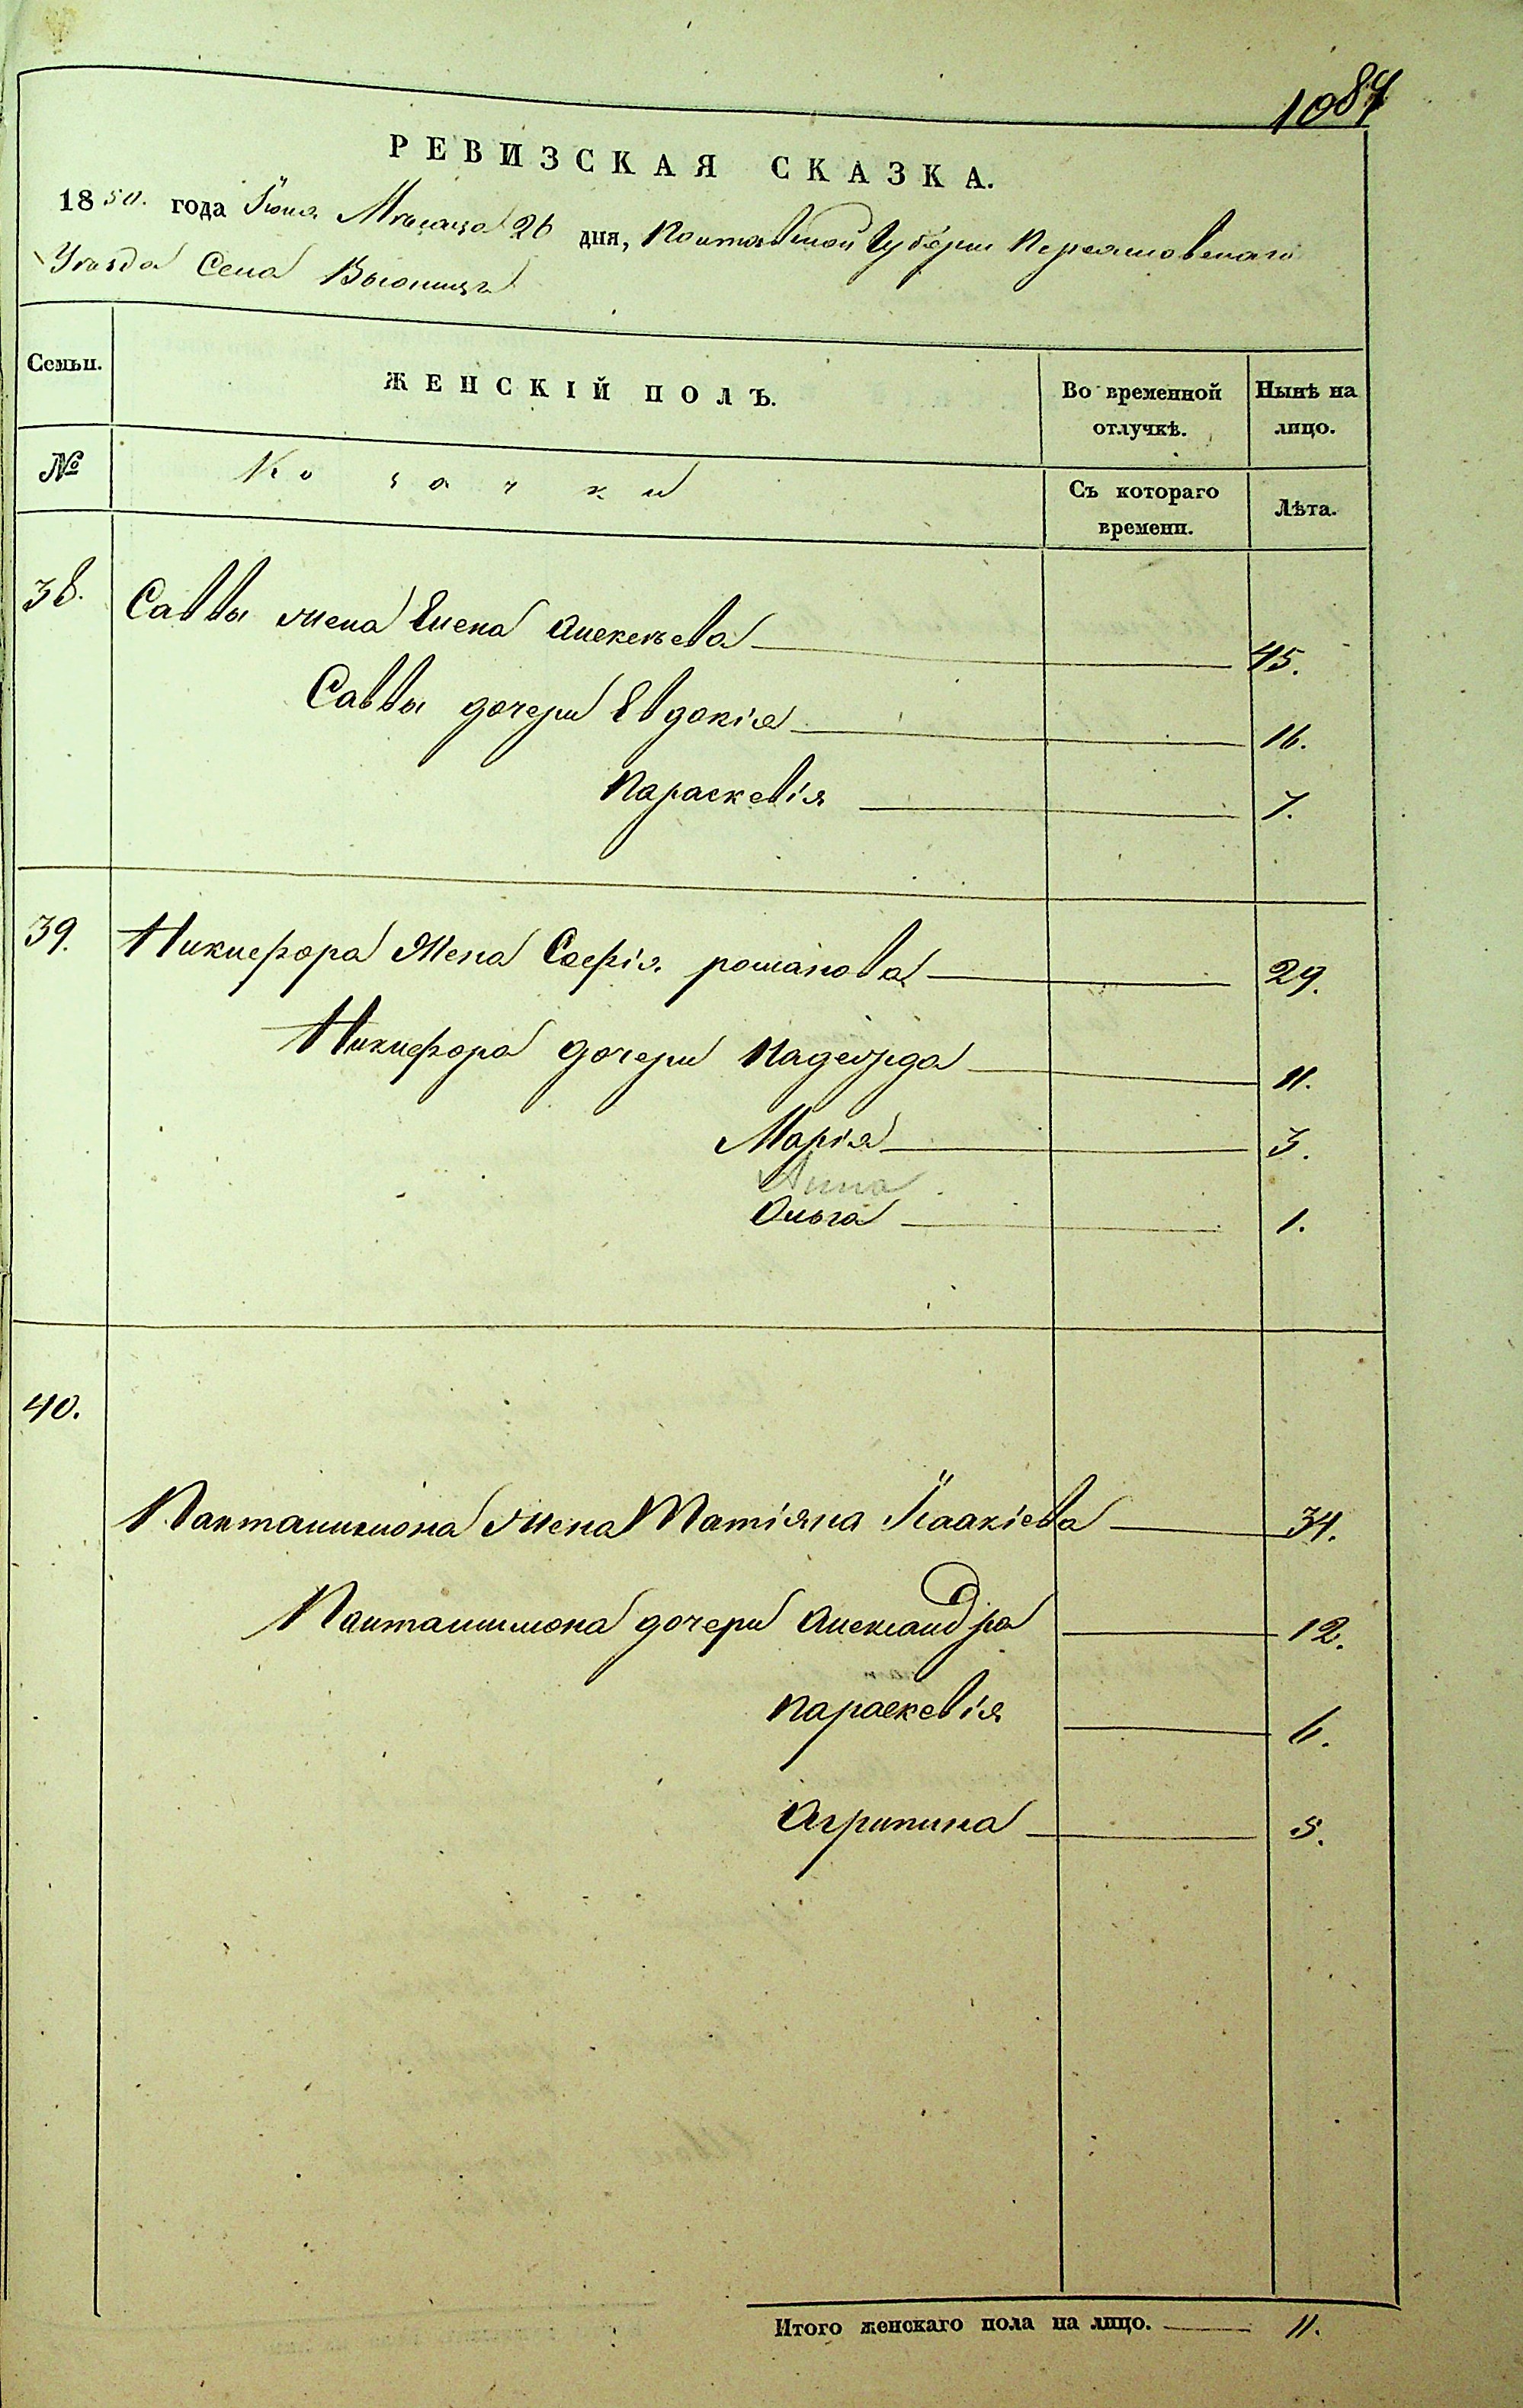 1084
РЕВИЗСКАЯ СКАЗКА.
1850. года Іюня Мѣсяца 26 дня, Полтавской Губерніи Переяславскаго
Уѣзда Села
Семьи.
ЖЕНСКІЙ ПОЛЪ.
Во временной отлучкѣ.
Нынѣ на лицо.
№
Козачки
Съ котораго времени.
Лѣта.
38. Саввы жена Елена Алексѣева 45.
Саввы дочери Евдокія 16.
Параскевія 7.
39. Никифора Жена Софія романова 29.
Никифора дочери Надежда 11.
Марія 3.
Анна
Ольга 1.
40.
Пантилимона жена Татіяна Ісаакіева 34.
Пантилимона дочери Александра 12.
Параскевія 6.
Агрипина 5.
Итого женскаго пола на лицо. 11.